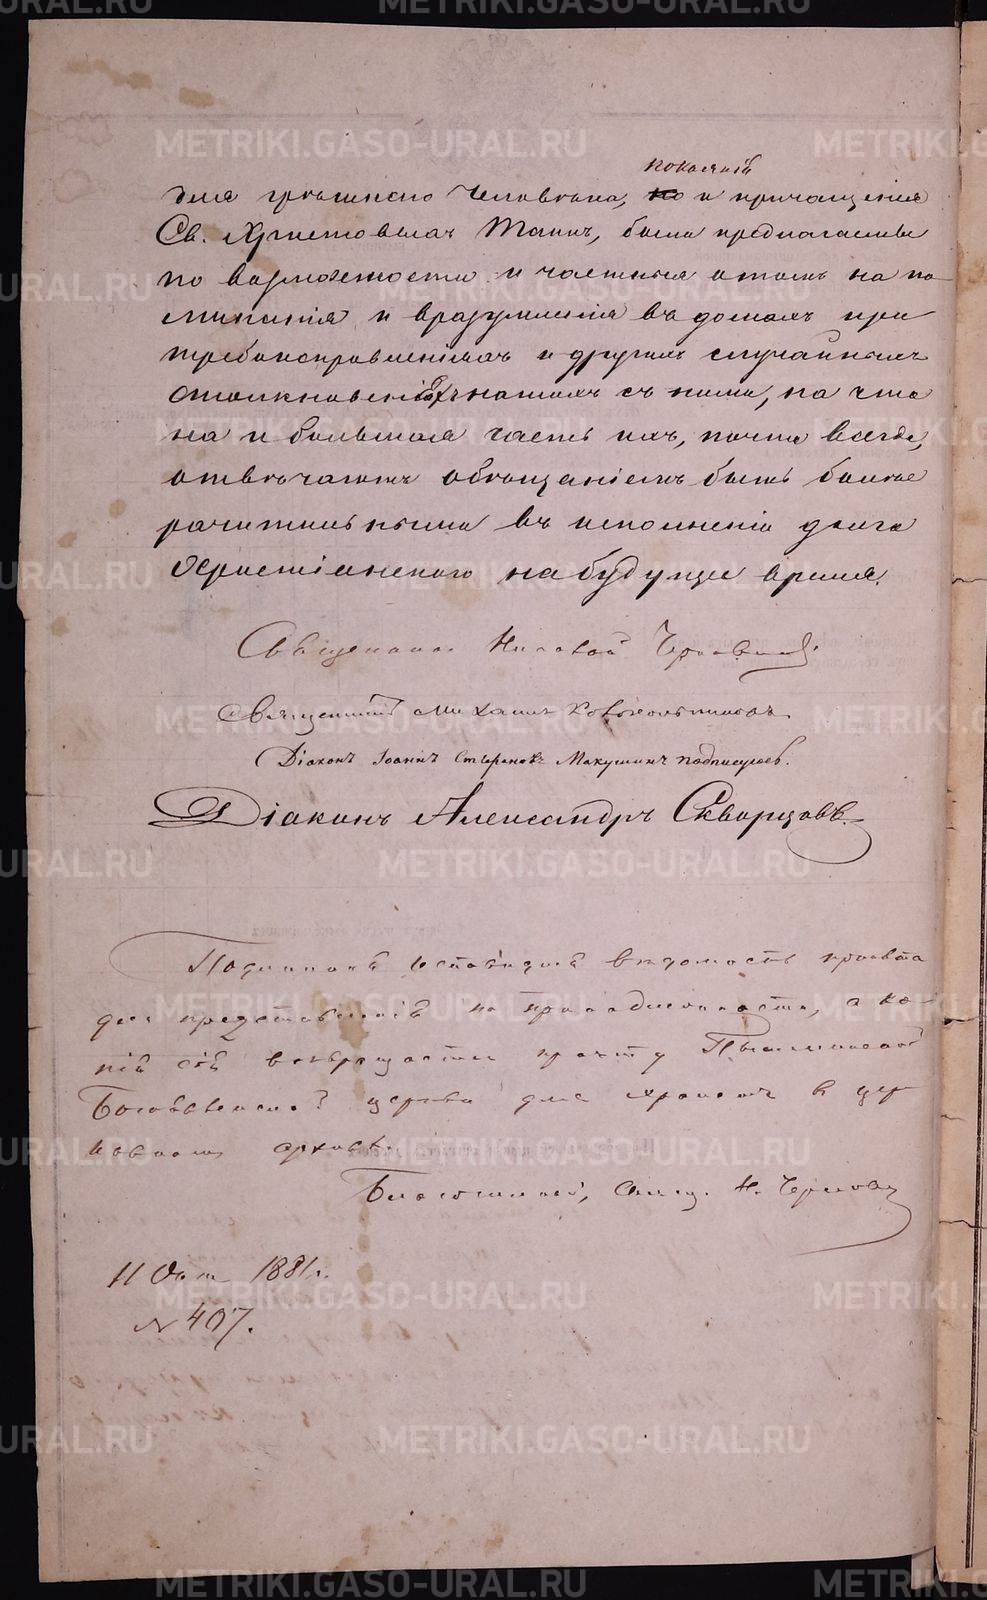 покаянiѣ
для грѣшнаго человѣка, но и причащенiя
Св. Христовыхъ Таинъ, были предлагаемы
по возможности и частныя о томъ напо-
минанiя и вразумленiя въ домахъ при
требоисправленiяхъ и другихъ случайныхъ
столкновенiяхъ нашихъ съ ними, на что
на и большая часть ихъ, почти всегда,
отвѣчаютъ обѣщанiемъ быть болѣе
рачительными въ исполненiи долга
Христiанскаго на будущее время.
Священникъ Николай
Священникъ Михаилъ
Дiаконъ Iоаннъ Стефановъ Макушинъ подписуюсь.
Дiаконъ Александръ Скворцовъ.
Подлинная исповѣдная вѣдомость принята
для представленiя по принадлежности, а ко-
пiя сiя возвращается причту Пышминской
Богоявленской церкви для храненiя въ цер-
ковномъ архивѣ.
Благочинный, Свящ. Н.
11 Окт 1881 г.
№ 407.
METRIKI.GASO-URAL.RU